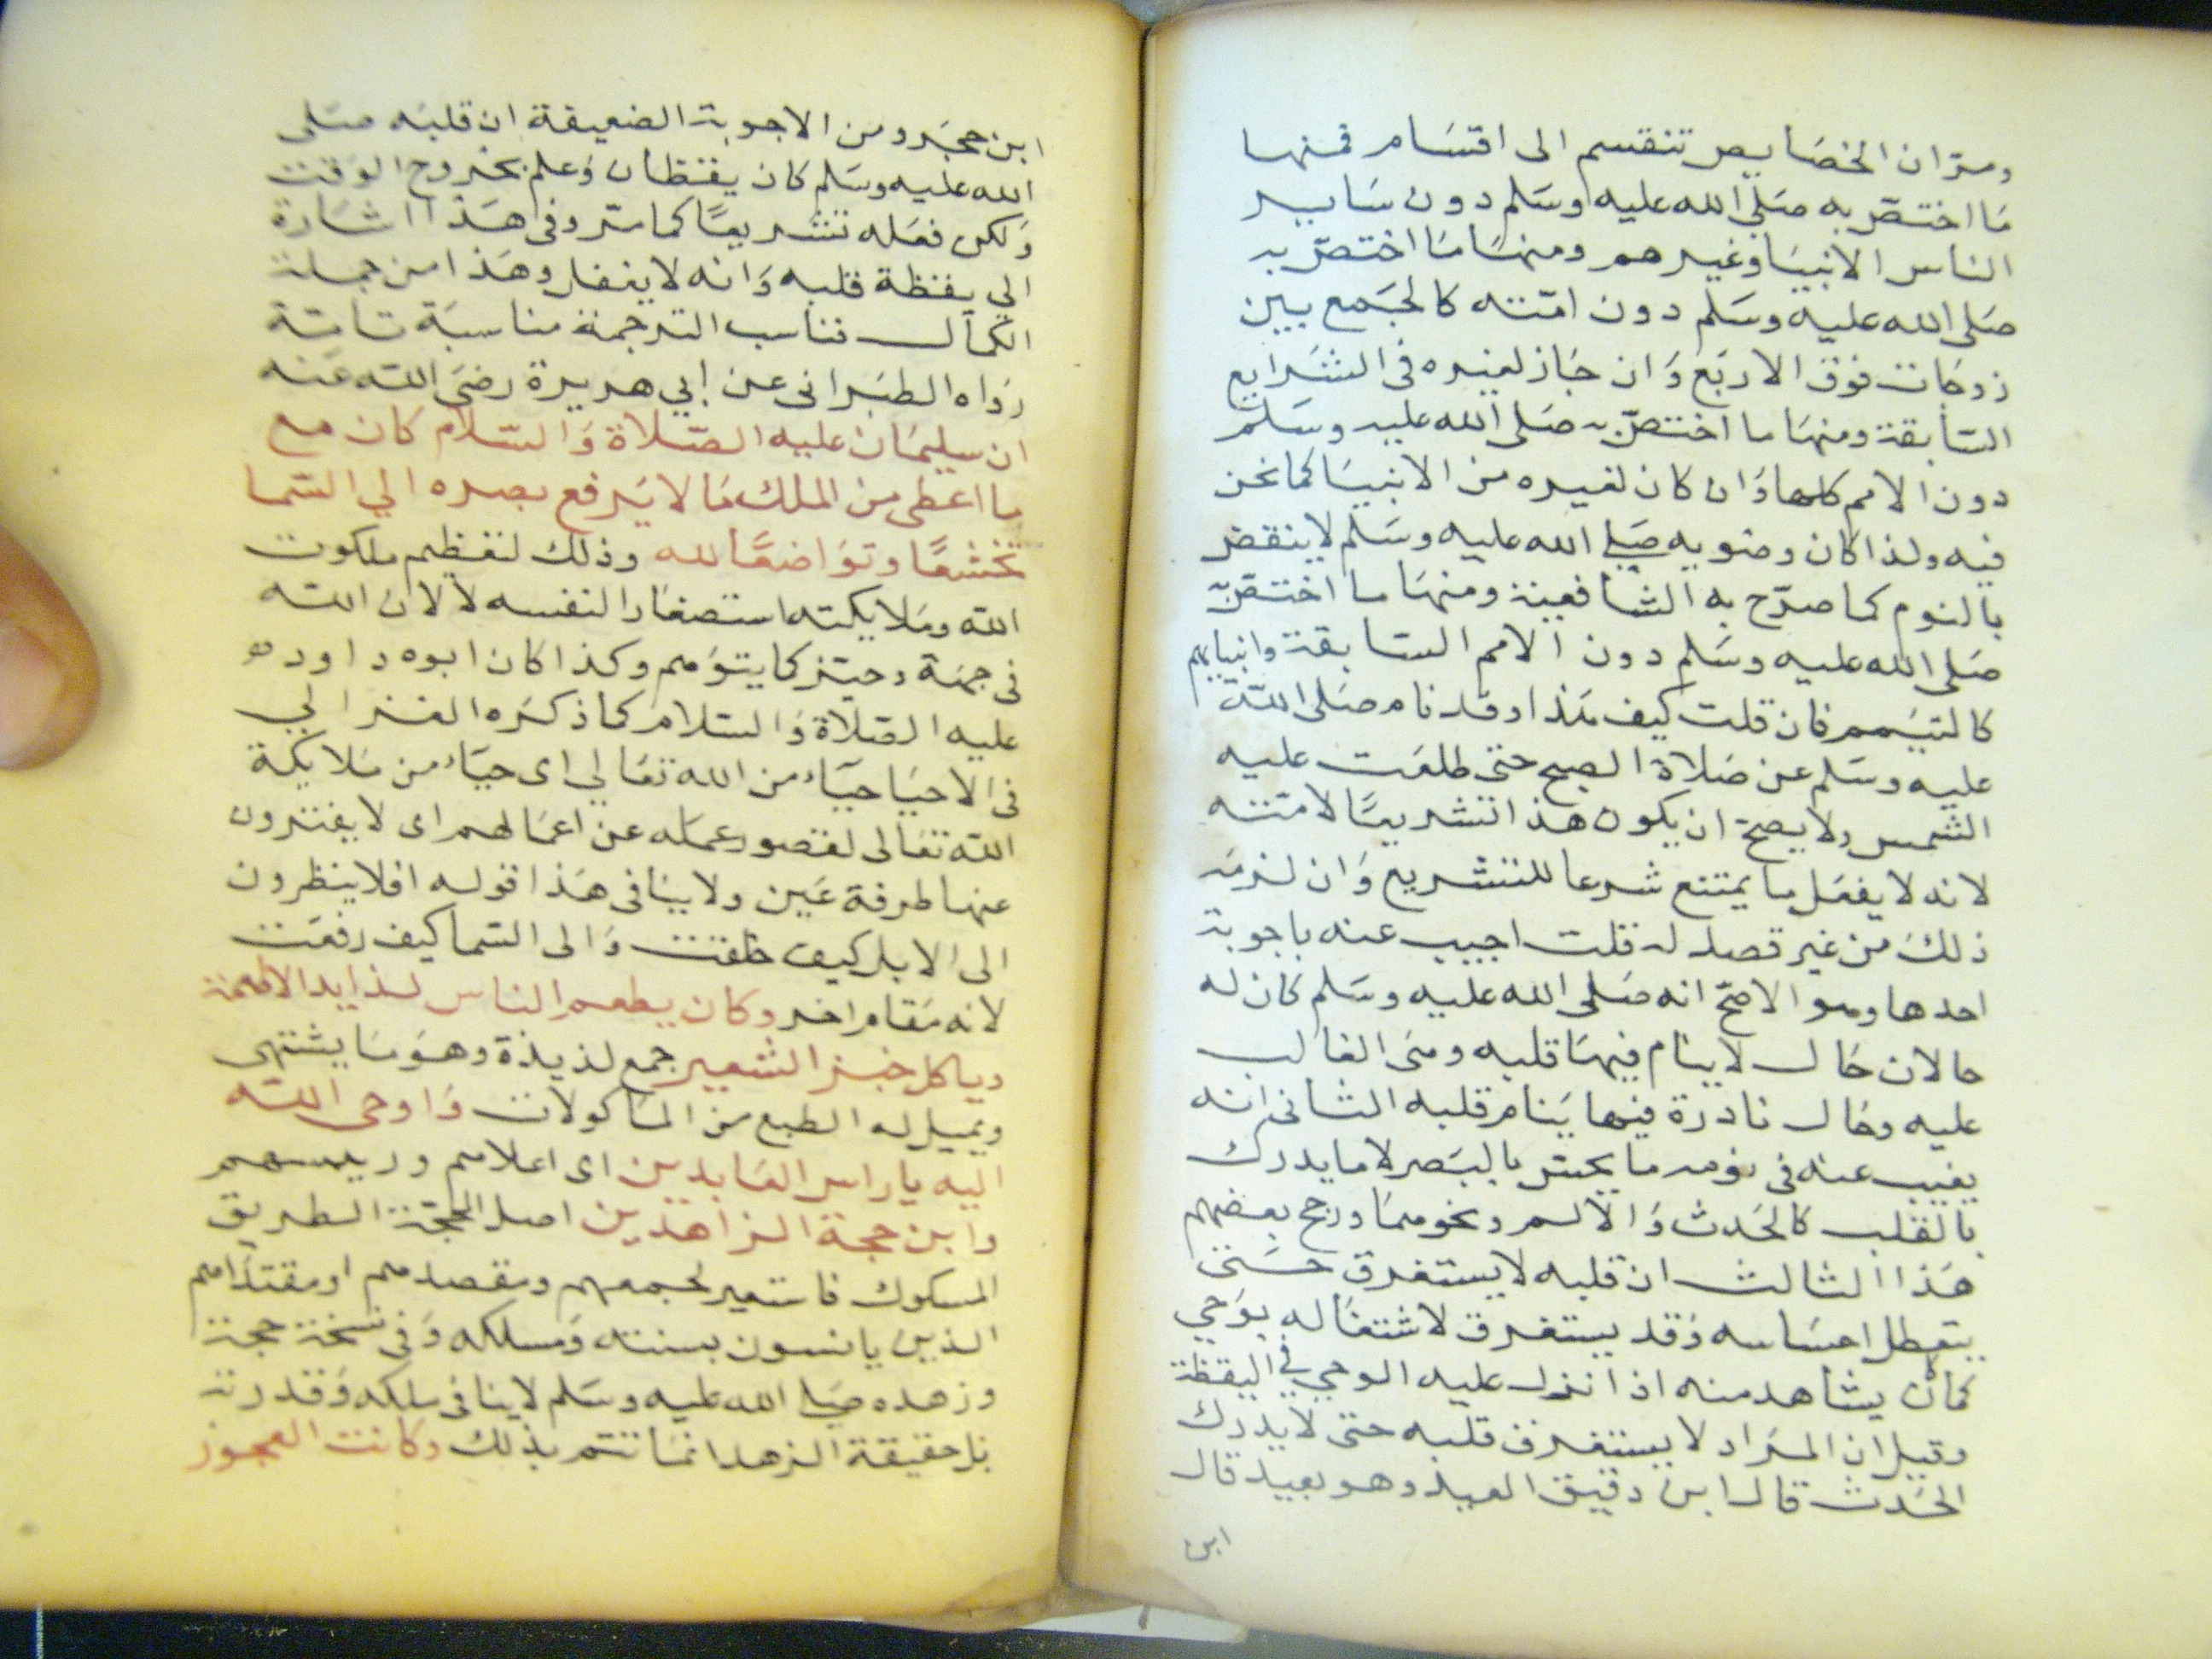 ومر ان الخصايص تنقسم الى اقسام فمنها
ما اختص به صلى الله عليه وسلم دون ساير
الناس الانبيا وغيرهم ومنها ما اختص به
صلى الله عليه وسلم دون امته كالجمع بين
زوجات فوق الاربع وان جاز لغيره فى الشرايع
السابقة ومنها ما اختص به صلى الله عليه وسلم
دون الامم كلها وان كان لغيره من الانبيا كما نحن
فيه ولذا كان وضويه صلى الله عليه وسلم لا ينقض
بالنوم كما صرح به الشافعية ومنها ما اختص به
صلى الله عليه وسلم دون الامم السابقة وانبيايهم
كالتيمم فان قلت كيف هذا وقد نام صلى الله
عليه وسلم عن صلاة الصبح حتى طلعت عليه
الشمس ولا يصح ان يكون هذا تشريعا لامته
لانه لا يفعل ما يمتنع شرعا للتشريع وان لزمه
ذلك من غير قصد له قلت اجيب عنه باجوبة
احدها وهو الاصح انه صلى الله عليه وسلم كان له
حالان حال لا ينام فيها قلبه وهى الغالب
عليه وحال نادرة فيها ينام قلبه الثانى انه
يغيب عنه فى نومه ما يحس بالبصر لا ما يدرك
بالقلب كالحدث والالم ونحوهما ورجح بعضهم
هذا الثالث ان قلبه لا يستغرق حتى
يتعطل احساسه وقد يستغرق لاشتغاله بوحي
كما كان يشاهد منه اذا نزل عليه الوحي في اليقظة
وقيل ان المراد لا يستغرق قلبه حتى لا يدرك
الحدث قال ابن دقيق العيد وهو بعيد قال
ابن
ابن حجر ومن الاجوبة الضعيفة ان قلبه صلى
الله عليه وسلم كان يقظان وعلم بخروج الوقت
ولكن فعله تشريعا كما مر وفى هذا اشارة
الي يقظة قلبه وانه لا يغفل وهذا من جملة
الكمال فناسب الترجمة مناسبة تامة
رواه الطبرانى عن ابي هريرة رضى الله عنه
ان سليمان عليه الصلاة والسلام كان مع
ما اعطى من الملك ما لا يرفع بصره الي السما
تخشعا وتواضعا لله وذلك لتعظيم ملكوت
الله وملايكته استصغارا لنفسه لا لان الله
فى جهة وحيز كما يتوهم وكذا كان ابوه داود
عليه الصلاة والسلام كما ذكره الغزالي
فى الاحيا حياء من الله تعالي اى حياء من ملايكة
الله تعالى لقصور عمله عن اعمالهم اى لا يفترون
عنها طرفة عين ولا ينافى هذا قوله افلا ينظرون
الى الابل كيف خلقت والى السما كيف رفعت
لانه مقام اخر وكان يطعم الناس لذايد الاطعمة
وياكل خبز الشعير جمع لذيذة وهو ما يشتهى
ويميل له الطبع من الماكولات واوحى الله
اليه يا راس العابدين اى اعلاهم ورييسهم
وابن حجة الزاهدين اصل الحجة الطريق
المسكوك فاستعير لجمعهم ومقصدهم او مقتداهم
الذين ياتسون بسنته ومسلكه وفى نسخة حجة
وزهده صلى الله عليه وسلم لا ينافى ملكه وقدرته
بل حقيقة الزهد انما تتم بذلك وكانت العجوز